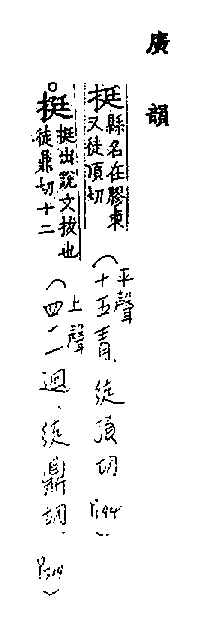 廣韻
挺縣名在膠東
又徒頂切
(平聲
十五青、徒頂切 P.194)
挺挺出說文拔也
徒鼎切十二
(上聲
四一迥、徒鼎切、)